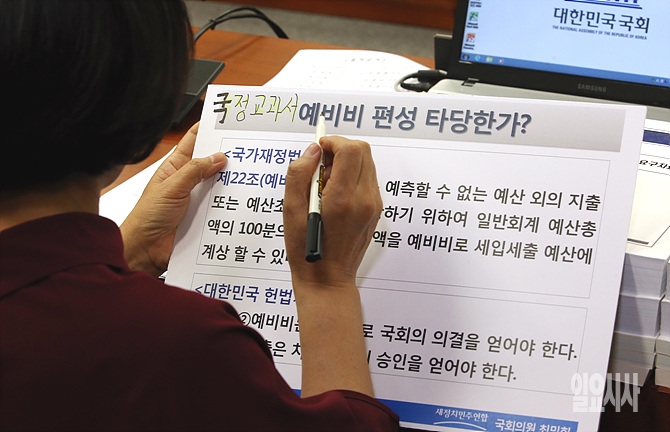 대한민국국회
THE NATIONAL ASSEMBLY OF THE REPUBLIC OF KOREA
SAMSUNG
국정교과서 예비비 편성 타당한가?
<국가재정법
제22조(예비 예측할 수 없는 예산 외의 지출
또는 예산초 하기 위하여 일반회계 예산총
액의 100분의 액을 예비비로 세입세출 예산에
계상할 수 있
<대한민국 헌법
②예비비는 로 국회의 의결을 얻어야 한다.
출은 차 의 승인을 얻어야 한다.
새정치민주연합 국회의원 최민희
일요시사